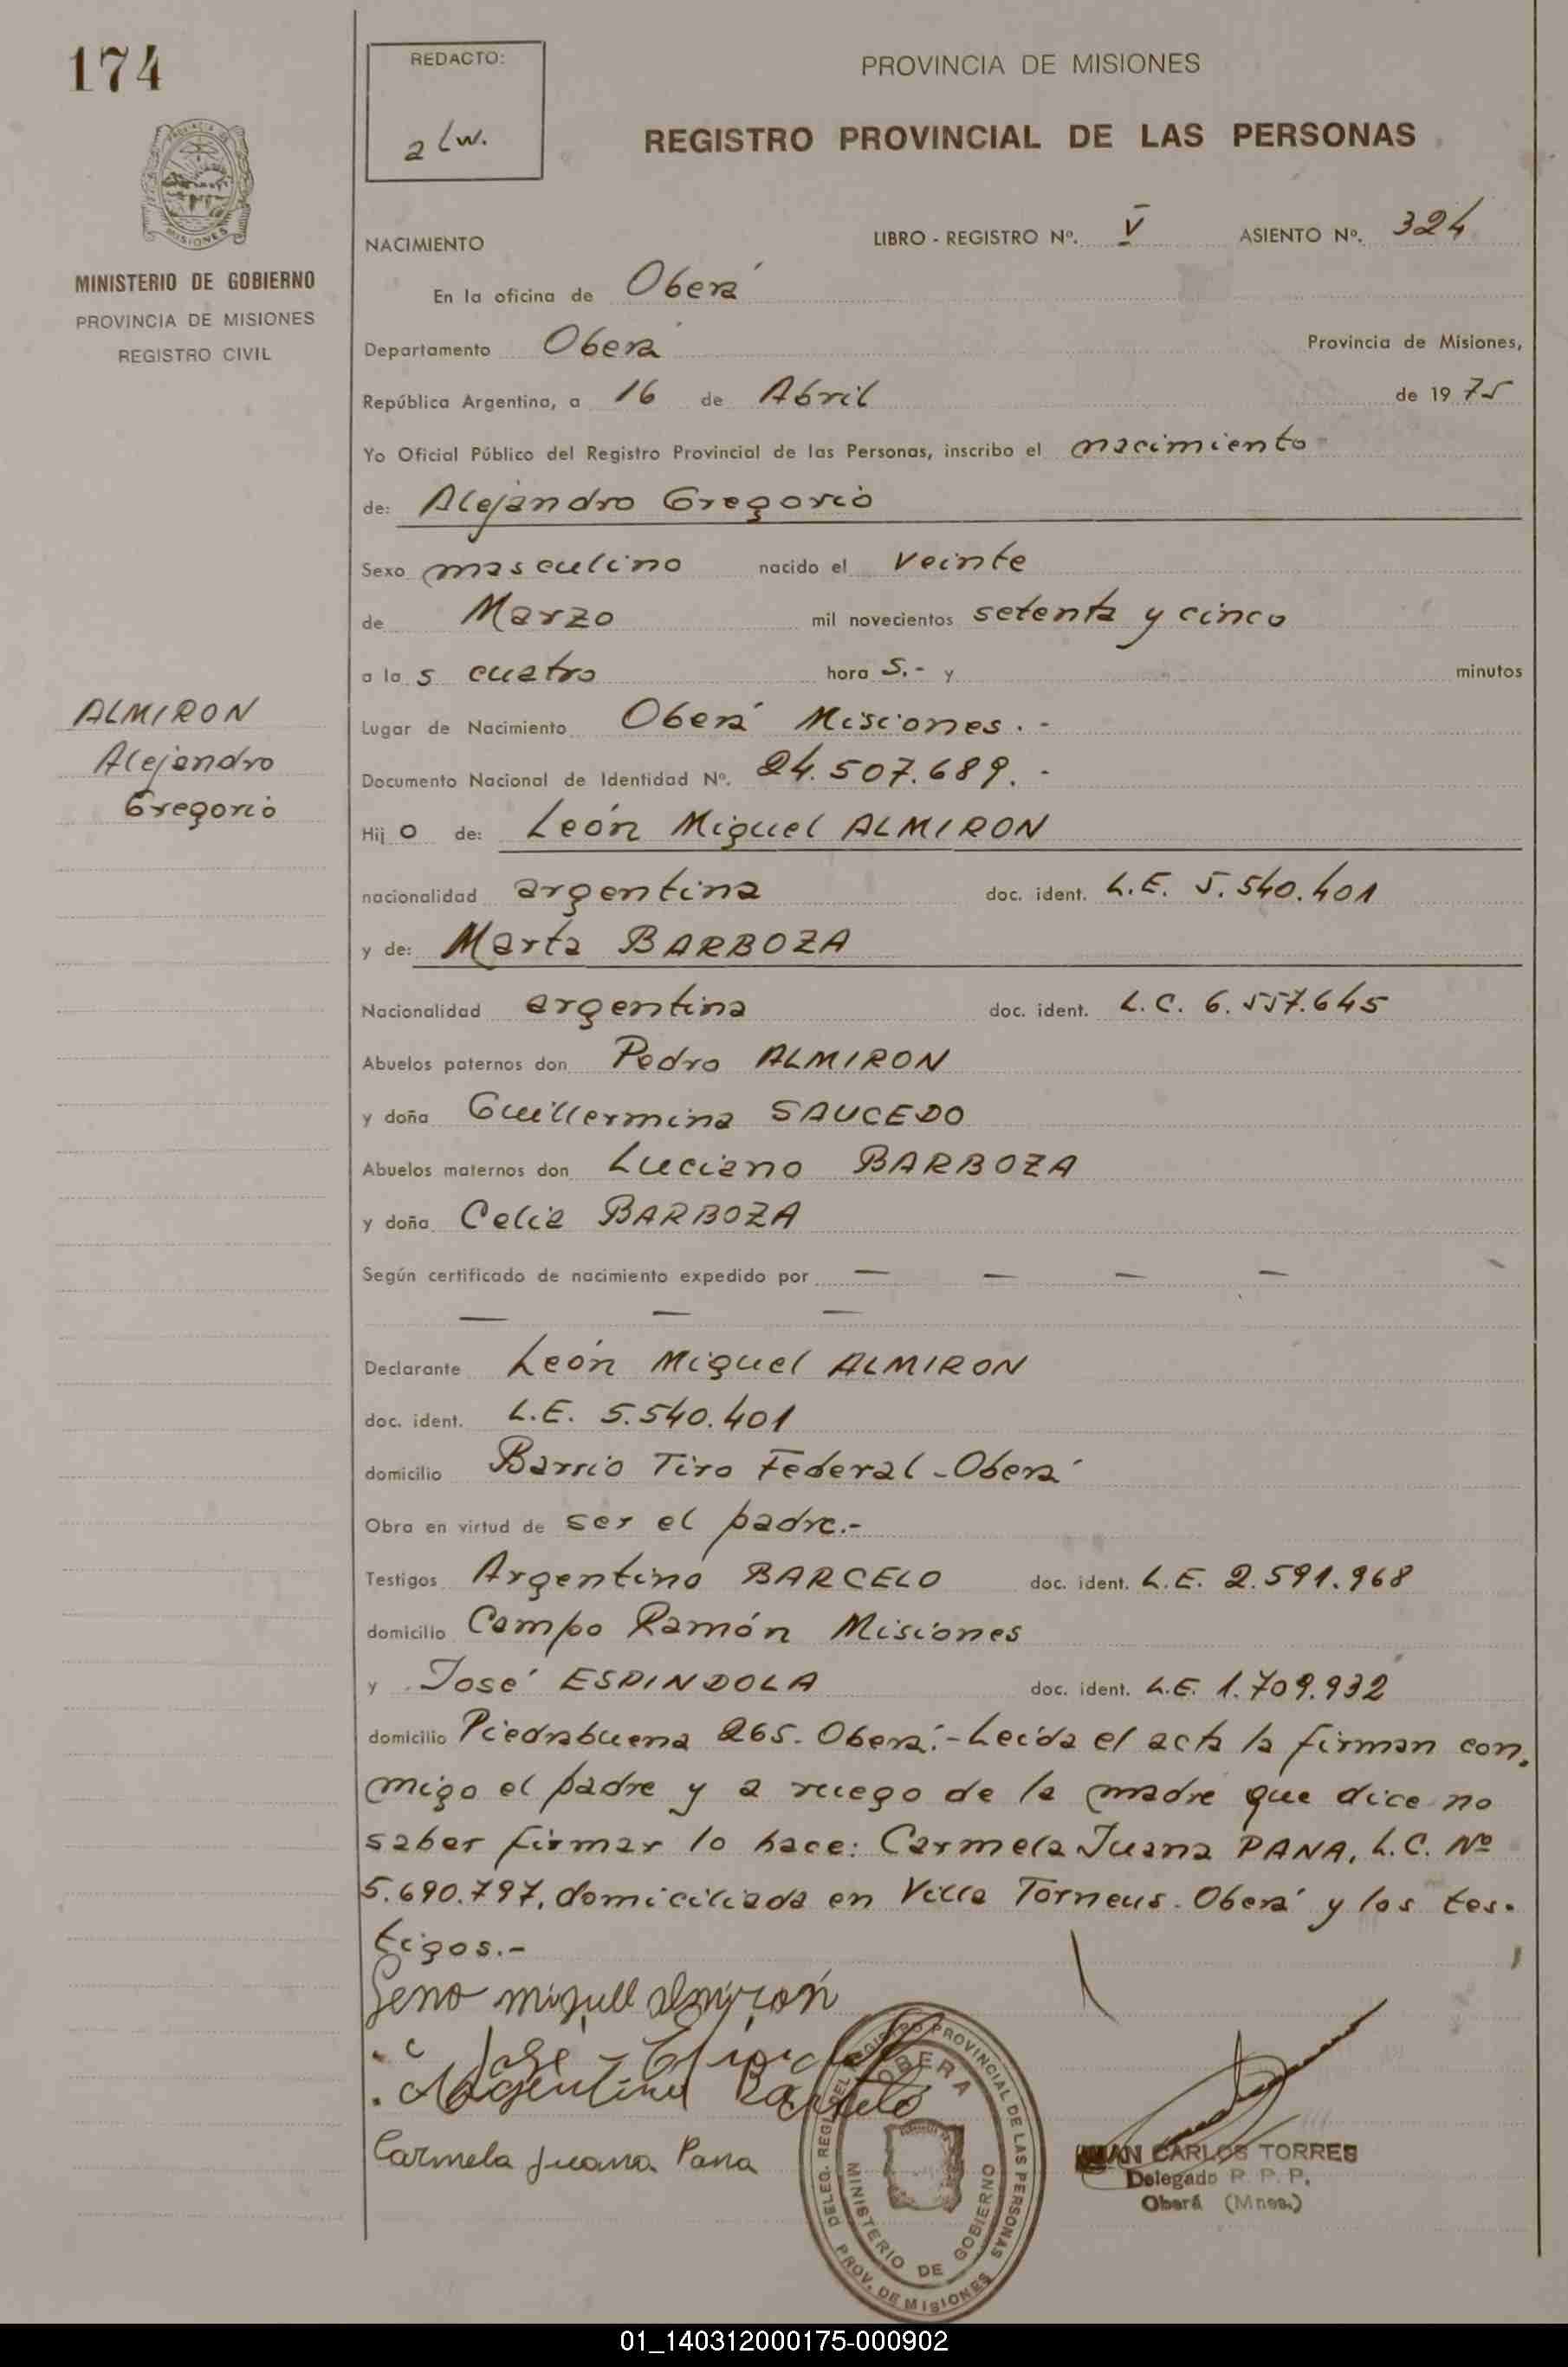 174
REDACTO:
a Lw.
PROVINCIA DE MISIONES
REGISTRO PROVINCIAL DE LAS PERSONAS
MISIONES
MINISTERIO DE GOBIERNO
PROVINCIA DE MISIONES
REGISTRO CIVIL
NACIMIENTO LIBRO - REGISTRO Nº. V ASIENTO Nº. 324
En la oficina de Oberá
Departamento Oberá Provincia de Misiones,
República Argentina, a 16 de Abril de 1975
Yo Oficial Público del Registro Provincial de las Personas, inscribo el nacimiento
de: Alejandro Gregorio
Sexo masculino nacido el veinte
de Marzo mil novecientos setenta y cinco
a las cuatro horas.- y minutos
ALMIRON
Alejandro
Gregorio
Lugar de Nacimiento Oberá Misiones.-
Documento Nacional de Identidad Nº. 24.507.689.-
Hijo de: León Miguel ALMIRON
nacionalidad argentina doc. ident. L.E. 5.540.401
y de: Marta BARBOZA
Nacionalidad argentina doc. ident. L.C. 6.557.645
Abuelos paternos don Pedro ALMIRON
y doña Guillermina SAUCEDO
Abuelos maternos don Luciano BARBOZA
y doña Celia BARBOZA
Según certificado de nacimiento expedido por — — — —
— — —
Declarante León Miguel ALMIRON
doc. ident. L.E. 5.540.401
domicilio Barrio Tiro Federal - Oberá
Obra en virtud de ser el padre.-
Testigos Argentino BARCELO doc. ident. L.E. 2.591.968
domicilio Campo Ramón Misiones
y José ESPINDOLA doc. ident. L.E. 1.709.932
domicilio Piedrabuena 265. Oberá.- Leída el acta la firman con-
migo el padre y a ruego de la madre que dice no
saber firmar lo hace: Carmela Juana PANA, L.C. Nº
5.690.797, domiciliada en Villa Torneus. Oberá y los tes-
tigos.-
Leno miguell almirón
José
Argentino Barcelo
Carmela Juana Pana
DELEG. REGL. DEL REGISTRO PROVINCIAL DE LAS PERSONAS
OBERA
MINISTERIO DE GOBIERNO
PROV. DE MISIONES
JUAN CARLOS TORRES
Delegado R. P. P.
Oberá (Mnes.)
01_140312000175-000902